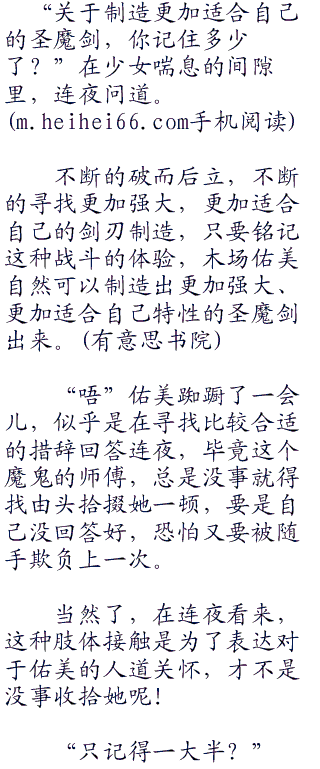 “关于制造更加适合自己
的圣魔剑，你记住多少
了？”在少女喘息的间隙
里，连夜问道。
(m.heihei66.com手机阅读)
不断的破而后立，不断
的寻找更加强大，更加适合
自己的剑刃制造，只要铭记
这种战斗的体验，木场佑美
自然可以制造出更加强大、
更加适合自己特性的圣魔剑
出来。(有意思书院)
“唔”佑美踟蹰了一会
儿，似乎是在寻找比较合适
的措辞回答连夜，毕竟这个
魔鬼的师傅，总是没事就得
找由头拾掇她一顿，要是自
己没回答好，恐怕又要被随
手欺负上一次。
当然了，在连夜看来，
这种肢体接触是为了表达对
于佑美的人道关怀，才不是
没事收拾她呢！
“只记得一大半？”